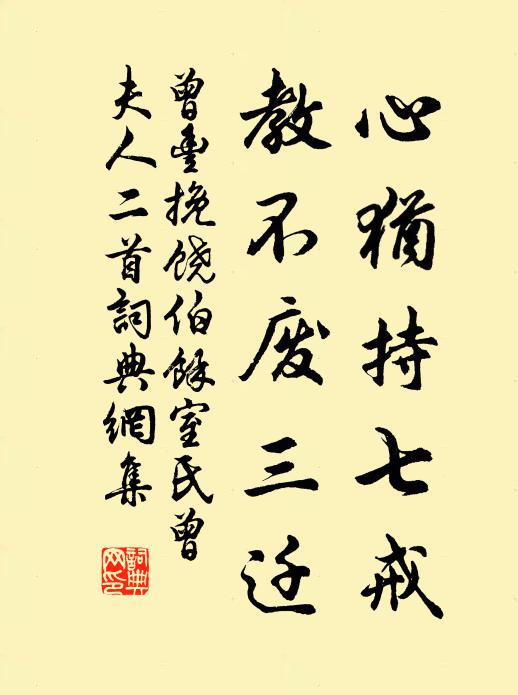 心猶持七戒
教不废三迁
曾豊挽饶伯餘室氏曾
夫人二首詞典網集
詞典网印